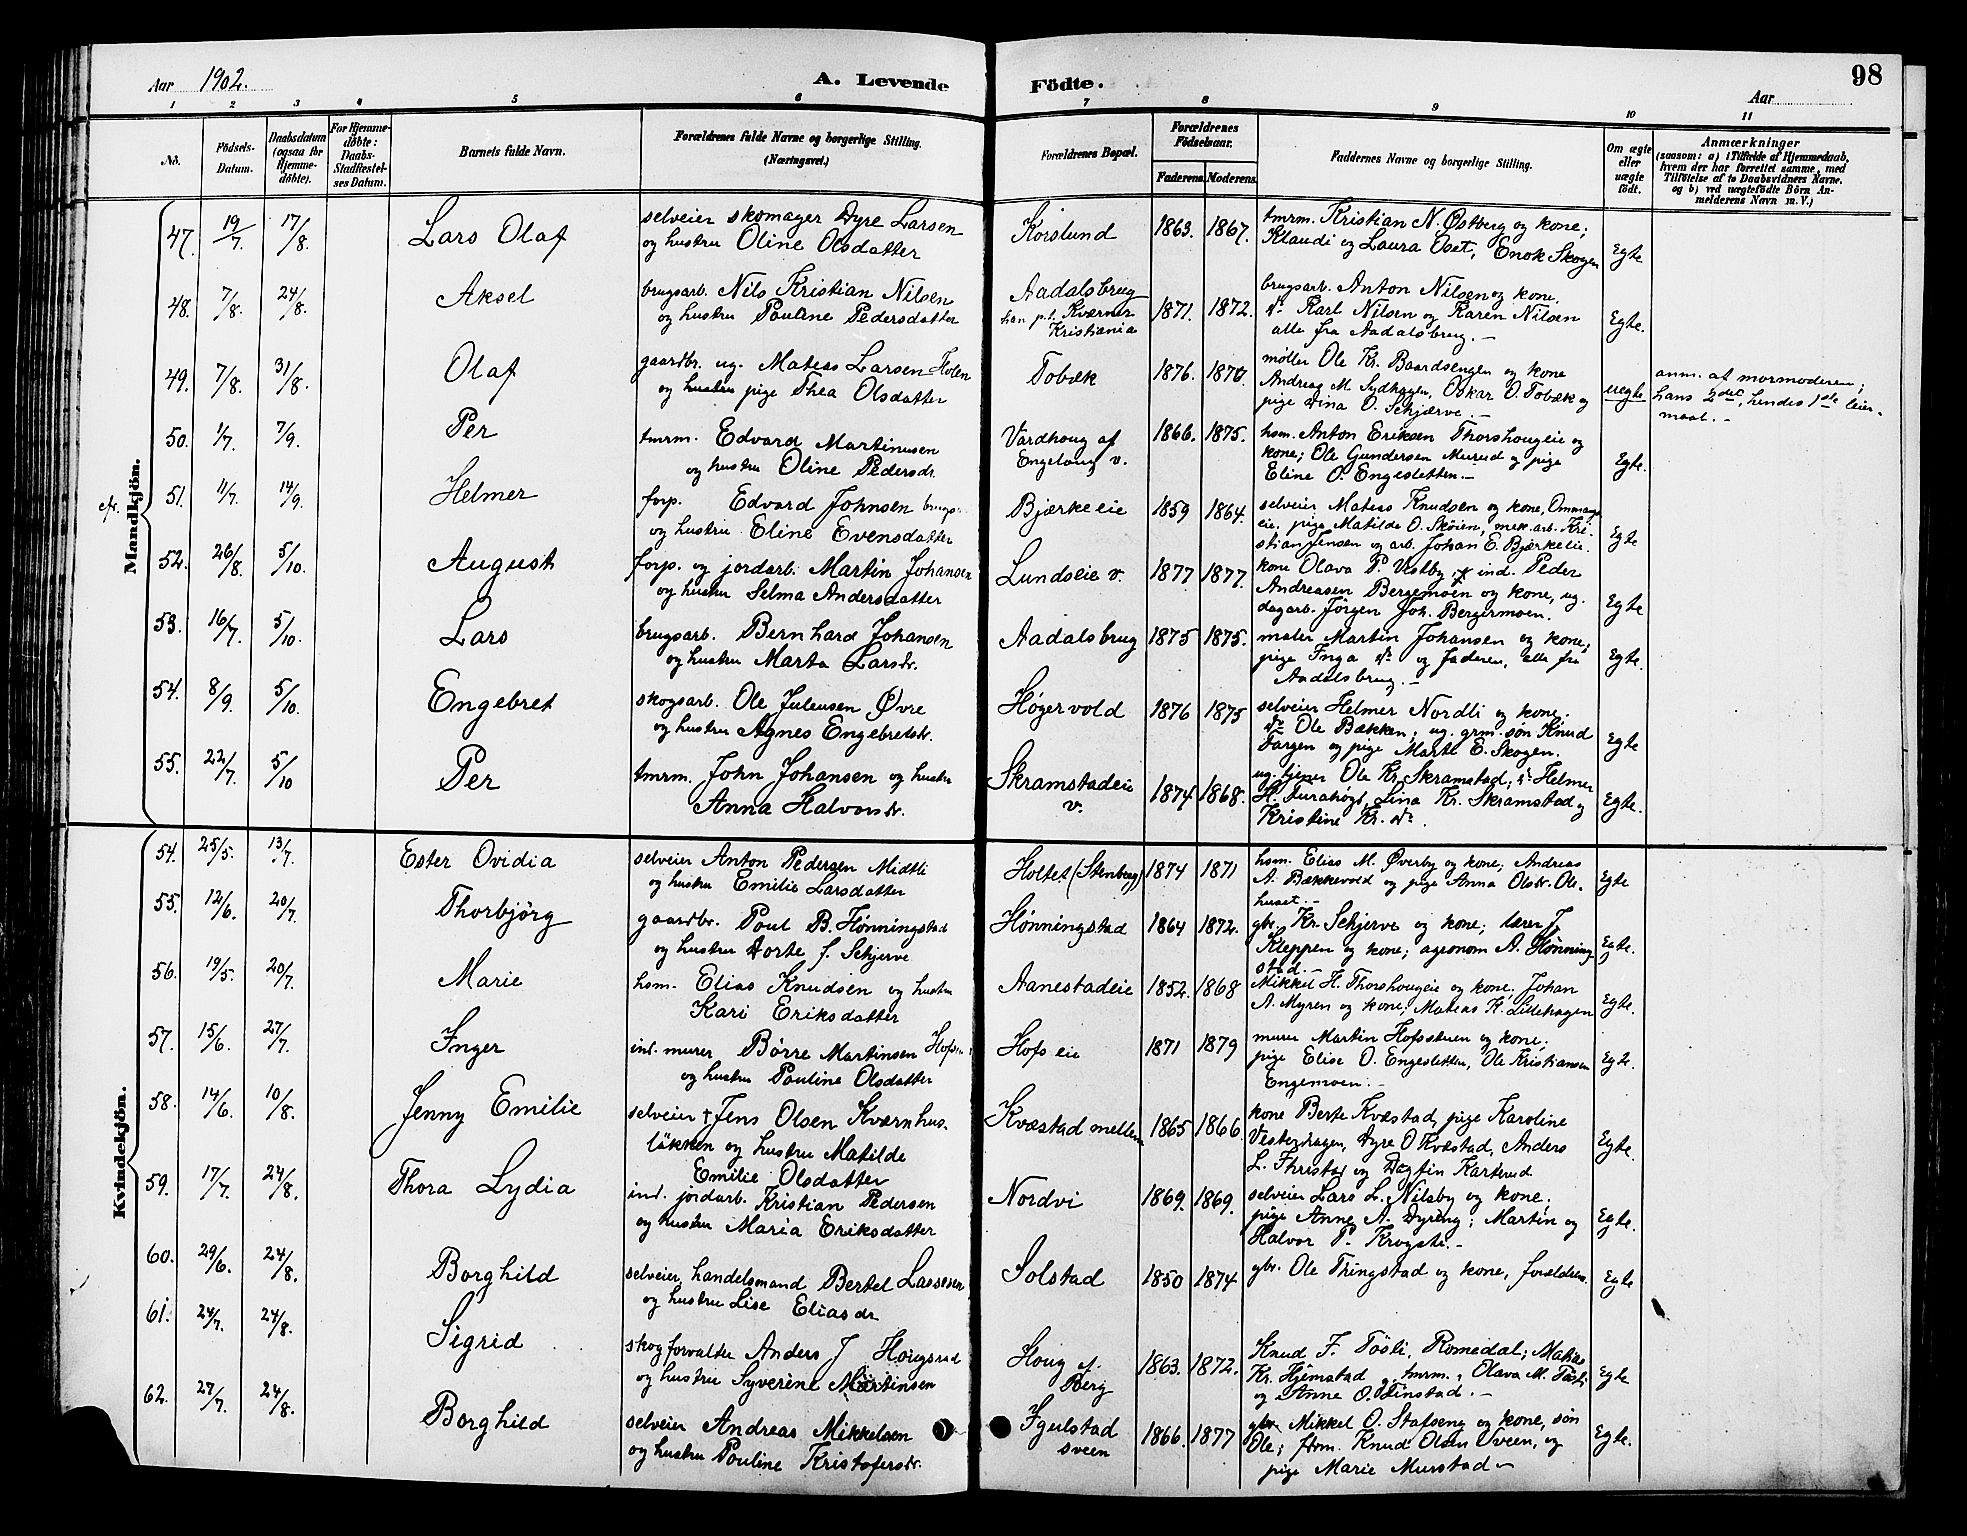 Aar 1902.
A. Levende
Födte.
98
Aar
1 2 3 4 5 6 7 8 9 10 11
No.
Födsels-Datum.
Daabsdatum (ogsaa for Hjemmedöbte).
For Hjemmedöbte: Daabs-Stadfæstelses Datum.
Barnets fulde Navn.
Forældrenes fulde Navne og borgerlige Stilling. (Næringsvei.)
Forældrenes Bopæl.
Forældrenes Födselsaar.
Faderens. Moderens.
Faddernes Navne og borgerlige Stilling.
Om ægte eller uægte födt.
Anmærkninger
(saasom: a) i Tilfælde af Hjemmedaab,
hvem der har forrettet samme, med
Tilföielse af to Daabsvidners Navne,
og b) ved uægtefödte Börn Anmelderens Navn m. V.)
Mandkjön.
47. 19/7. 17/8. Lars Olaf
selveier skomager Dyre Larsen
og hustru Oline Olsdatter
Korslund 1863. 1867.
tmrm. Kristian N. Østberg og kone;
Klaudi og Laura Oset, Enok Skogen
Egte
48. 7/8. 24/8. Aksel
brugsarb. Nils Kristian Nilsen
og hustru Pauline Pedersdatter
Aadalsbrug
han p.t. Kværner
Kristiania
1871. 1872.
brugsarb. Anton Nilsen og kone.
do Karl Nilsen og Karen Nilsen
alle fra Aadalsbrug. —
Egte.
49. 7/8. 31/8. Olaf
gaardbr. ug. Mateas Larsen Holen
og hustru pige Thea Olsdatter
Tobæk 1876. 1870.
møller Ole Kr. Baardsengen og kone
Andreas M. Sydhagen, Oskar O. Tobæk og
pige Dina O. Schjærve. —
uegte
anm. af mormoderen;
hans 2det, hendes 1ste leiermaal. —
50. 1/7. 7/9. Per
tmrm. Edvard Martinusen
og hustru Oline Pedersdr.
Vardhoug af
Engeloug v.
1866. 1875.
hsm. Anton Eriksen Thorshougeie og
kone; Ole Gundersen Murud og pige
Eline O. Engesletten. —
Egte.
51. 11/7. 14/9. Helmer
forp. Edvard Johnsen
og hustru Eline Evensdatter
Bjærkeeie 1859 1864.
selveier Mateas Knudsen og kone,
eie, pige Matilde O. Skøien, mek. arb. Kristian
Jensen og arb. Johan E. Bjærkeeie.
Egte
52. 26/8. 5/10. August
forp. og jordarb. Martin Johansen
og hustru Selma Andersdatter
Lundseie v. 1877 1877.
kone Olava P. Vestby, ind. Peder
Andreasen Bergemoen og kone, ug.
dagarb. Jörgen Joh. Bergermoen.
Egte.
53. 16/7. 5/10. Lars
brugsarb. Bernhard Johansen
og hustru Marta Larsdr.
Aadalsbrug 1875 1875.
maler Martin Johansen og kone,
pige Inga do og faderen, alle fra
Aadalsbrug. —
Egte.
54. 8/9. 5/10. Engebret
skogsarb. Ole Juliusen Øvre
og hustru Agnes Engebretsdr.
Høgervold 1876 1875
selveier Helmer Nordli og kone.
do Ole Bækken; ug. grm. søn Knud
Fargen og pige Marte E. Skogen.
Egte
55. 22/7. 5/10 Per
tmrm. John Johansen og hustru
Anna Halvorsdr.
Skramstadeie
v.
1874 1868.
ug. tjener Ole Kr. Skramstad, do Helmer
H. Furahøgd, Lina Kr. Skramstad og
Kristine Kr. do.
Egte.
Kvindekjön.
54. 25/5. 13/7. Ester Ovidia
selveier Anton Pedersen Midtli
og hustru Emilie Larsdatter
Holtet (Stenberg) 1874 1871
hsm. Elias M. Øverby og kone; Andreas
A. Bækkevold og pige Anna Olsdr. Olehuset. —
Egte
55. 12/6. 20/7. Thorbjörg
gaardbr. Poul B. Hønningstad
og hustru Dorte f. Schjerve
Hønningstad 1864 1872.
gbr. Kr. Schjerve og kone; lærer J.
Kleppen og kone; agronom A. Hønningstad. —
Egte.
56. 19/5. 20/7. Marie
hsm. Elias Knudsen og hustru
Kari Eriksdatter
Aanestadeie 1852. 1868
Mikkel H. Thorshougeie og kone, Johan
A. Myren og kone, Mateas H. Lillehagen
Egte.
57. 15/6. 27/7. Inger
ind. murer Børre Martinsen
og hustru Pauline Olsdatter
Hofseie 1871 1879
murer Martin Hofsstuen og kone;
pige Elise O. Engesletten, Ole Kristiansen
Engemoen. —
Egte.
58. 14/6. 10/8. Jenny Emilie
selveier + Jens Olsen Kværnhusløkken
og hustru Matilde
Emilie Olsdatter
Kvæstad mellem 1865 1866
kone Berte Kvæstad, pige Karoline
Vesterhagen, Dyre O Kvæstad, Anders
L. Thristad og Dagfin Karterud
Egte.
59. 17/7. 24/8. Thora Lydia
ind. jordarb. Kristian Pedersen
og hustru Maria Eriksdatter
Nordvi 1869. 1869.
selveier Lars L. Nilsby og kone.
pige Anne A. Dyreng; Martin og
Halvor P. Krogsti. —
Egte.
60. 29/6. 24/8. Borghild
selveier, handelsmand Bertel Lassesen
og hustru Lise Eliasdr
Solstad 1850 1874
gbr. Ole Thingstad og kone, forældrene.
Egte
61. 24/7. 24/8. Sigrid
skogforvalter Anders J Hougsrud
og hustru Syverine Martinsen
Houg af
Berg
1863. 1872.
Knud F. Tøsti, Romedal; Matias
Kr. Hjemstad, tmrm., Olava M. Tøsti
og Anne O. Finstad. —
Egte
62. 27/7. 24/8. Borghild
selveier Andreas Mikkelsen
og hustru Pauline Kristofersdr.
Igelstad
sveen
1866. 1877
gbr. Mikkel O. Stafseng og kone, søn
Ole; fhm. Knud Olsen Sveen, og
pige Marie Murstad —
Egte.